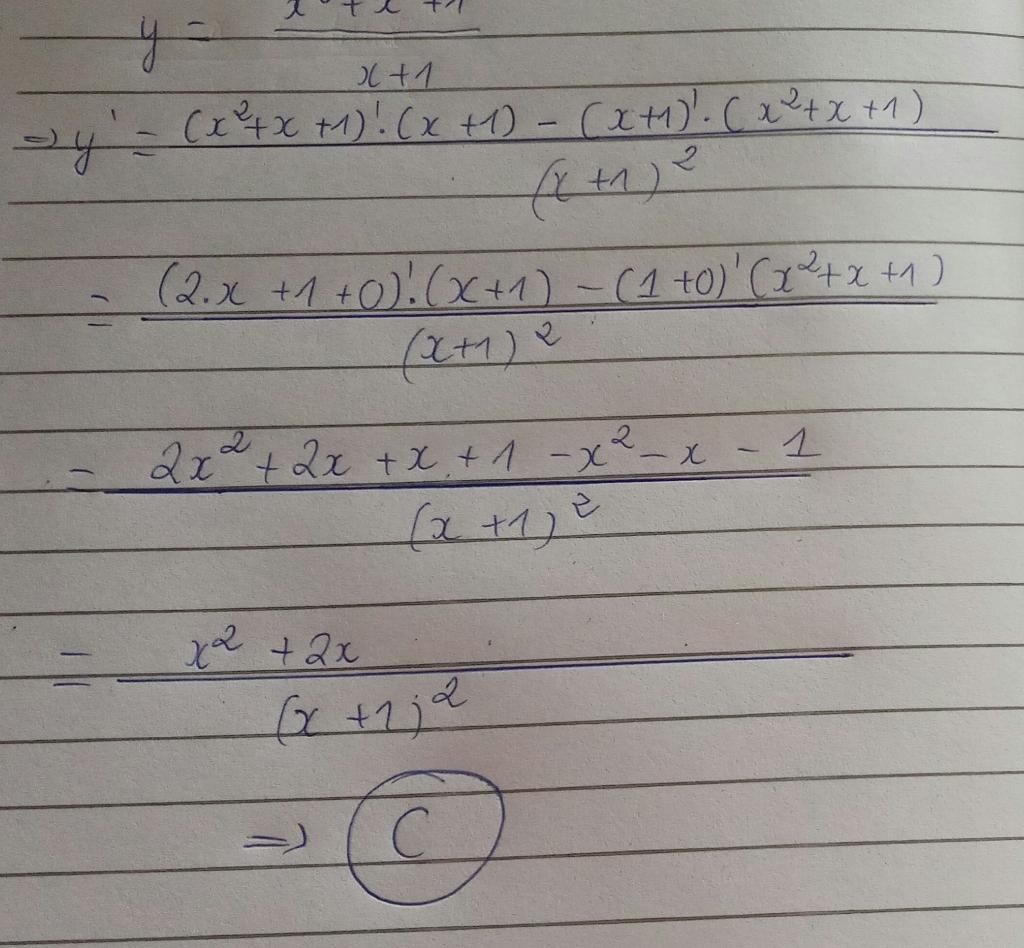 y = x² + x + 1 / x + 1
=> y' = (x²+x+1)'.(x+1) - (x+1)'.(x²+x+1) / (x+1)²
= (2.x+1+0)'.(x+1) - (1+0)'(x²+x+1) / (x+1)²
= 2x²+2x+x+1-x²-x-1 / (x+1)²
= x²+2x / (x+1)²
=> C